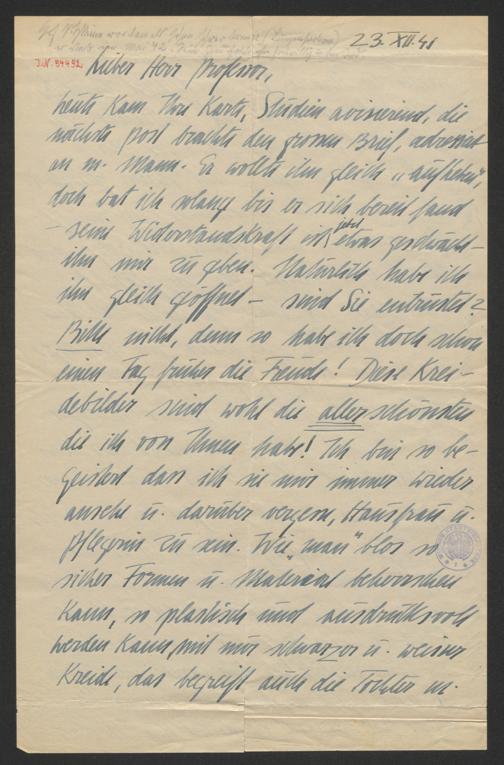 23. XII. 41
J.N. 94492
Lieber Herr Professor,
heute kam Ihre Karte, Studien avisierend, die
nächste Post brachte den grossen Brief, adressiert
an m. Mann. Er wollte ihn gleich „aufheben",
doch bat ich solange bis er sich bereit fand
– seine Widerstandskraft ist jetzt etwas geschwächt –
ihn mir zu geben. Natürlich habe ich
ihn gleich geöffnet – sind Sie entrüstet?
Bitte nicht, denn so habe ich doch schon
einen Tag früher die Freude! Diese Krei-
debilder sind wohl die allerschönsten
die ich von Ihnen habe! Ich bin so be-
geistert dass ich sie mir immer wieder
ansehe u. darüber vergesse, Hausfrau u.
Pflegerin zu sein. Wie „man" blos so
sicher Formen u. Material beherrschen
kann, so plastisch und ausdrucksvoll
werden kann, mit nur schwarzer u. weisser
Kreide, das begreift auch die Tochter m.